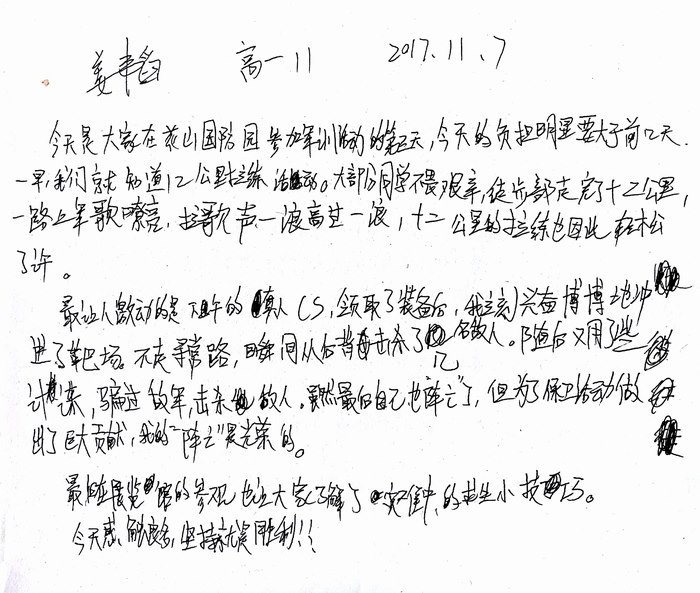 姜丰韵 高一11 2017.11.7
今天是大家在茅山国防园参加军训活动的第五天,今天的负担明显要大于前几天.
一早,我们就知道12公里拉练活动。大部分同学不畏艰辛,徒步都走完了十二公里,
一路上军歌嘹亮,拉歌声一浪高过一浪,十二公里的拉练也因此轻松
了许。
最让人激动的是下午的真人CS,领取了装备后,我立刻兴奋博博地冲
进了靶场。不走寻常路,瞬间从后背击杀了几名敌人。随后又用了些
计策,骗过敌军,击杀敌人。虽然最后自己也"阵亡"了,但为了保卫行动做
出了巨大贡献,我的"阵亡"是光荣的。
最后展览馆的参观也让大家了解了实中的求生小技巧。
今天感触良多,坚持就是胜利!!